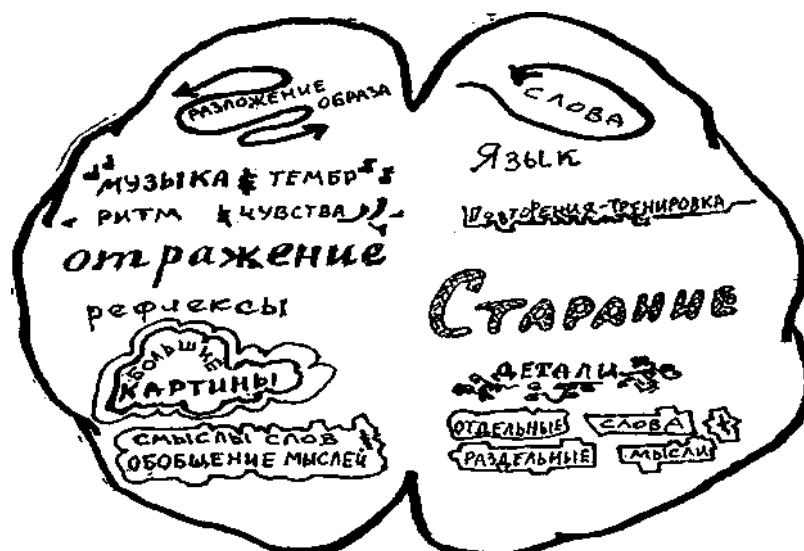 РАЗЛОЖЕНИЕ
ОБРАЗА
МУЗЫКА ТЕМБР
РИТМ ЧУВСТВА
отражение
рефлексы
БОЛЬШИЕ
КАРТИНЫ
СМЫСЛЫ СЛОВ +
ОБОБЩЕНИЕ МЫСЛЕЙ
СЛОВА
Язык
ПОВТОРЕНИЯ-ТРЕНИРОВКА
СТАРАНИЕ
ДЕТАЛИ
ОТДЕЛЬНЫЕ СЛОВА +
РАЗДЕЛЬНЫЕ МЫСЛИ